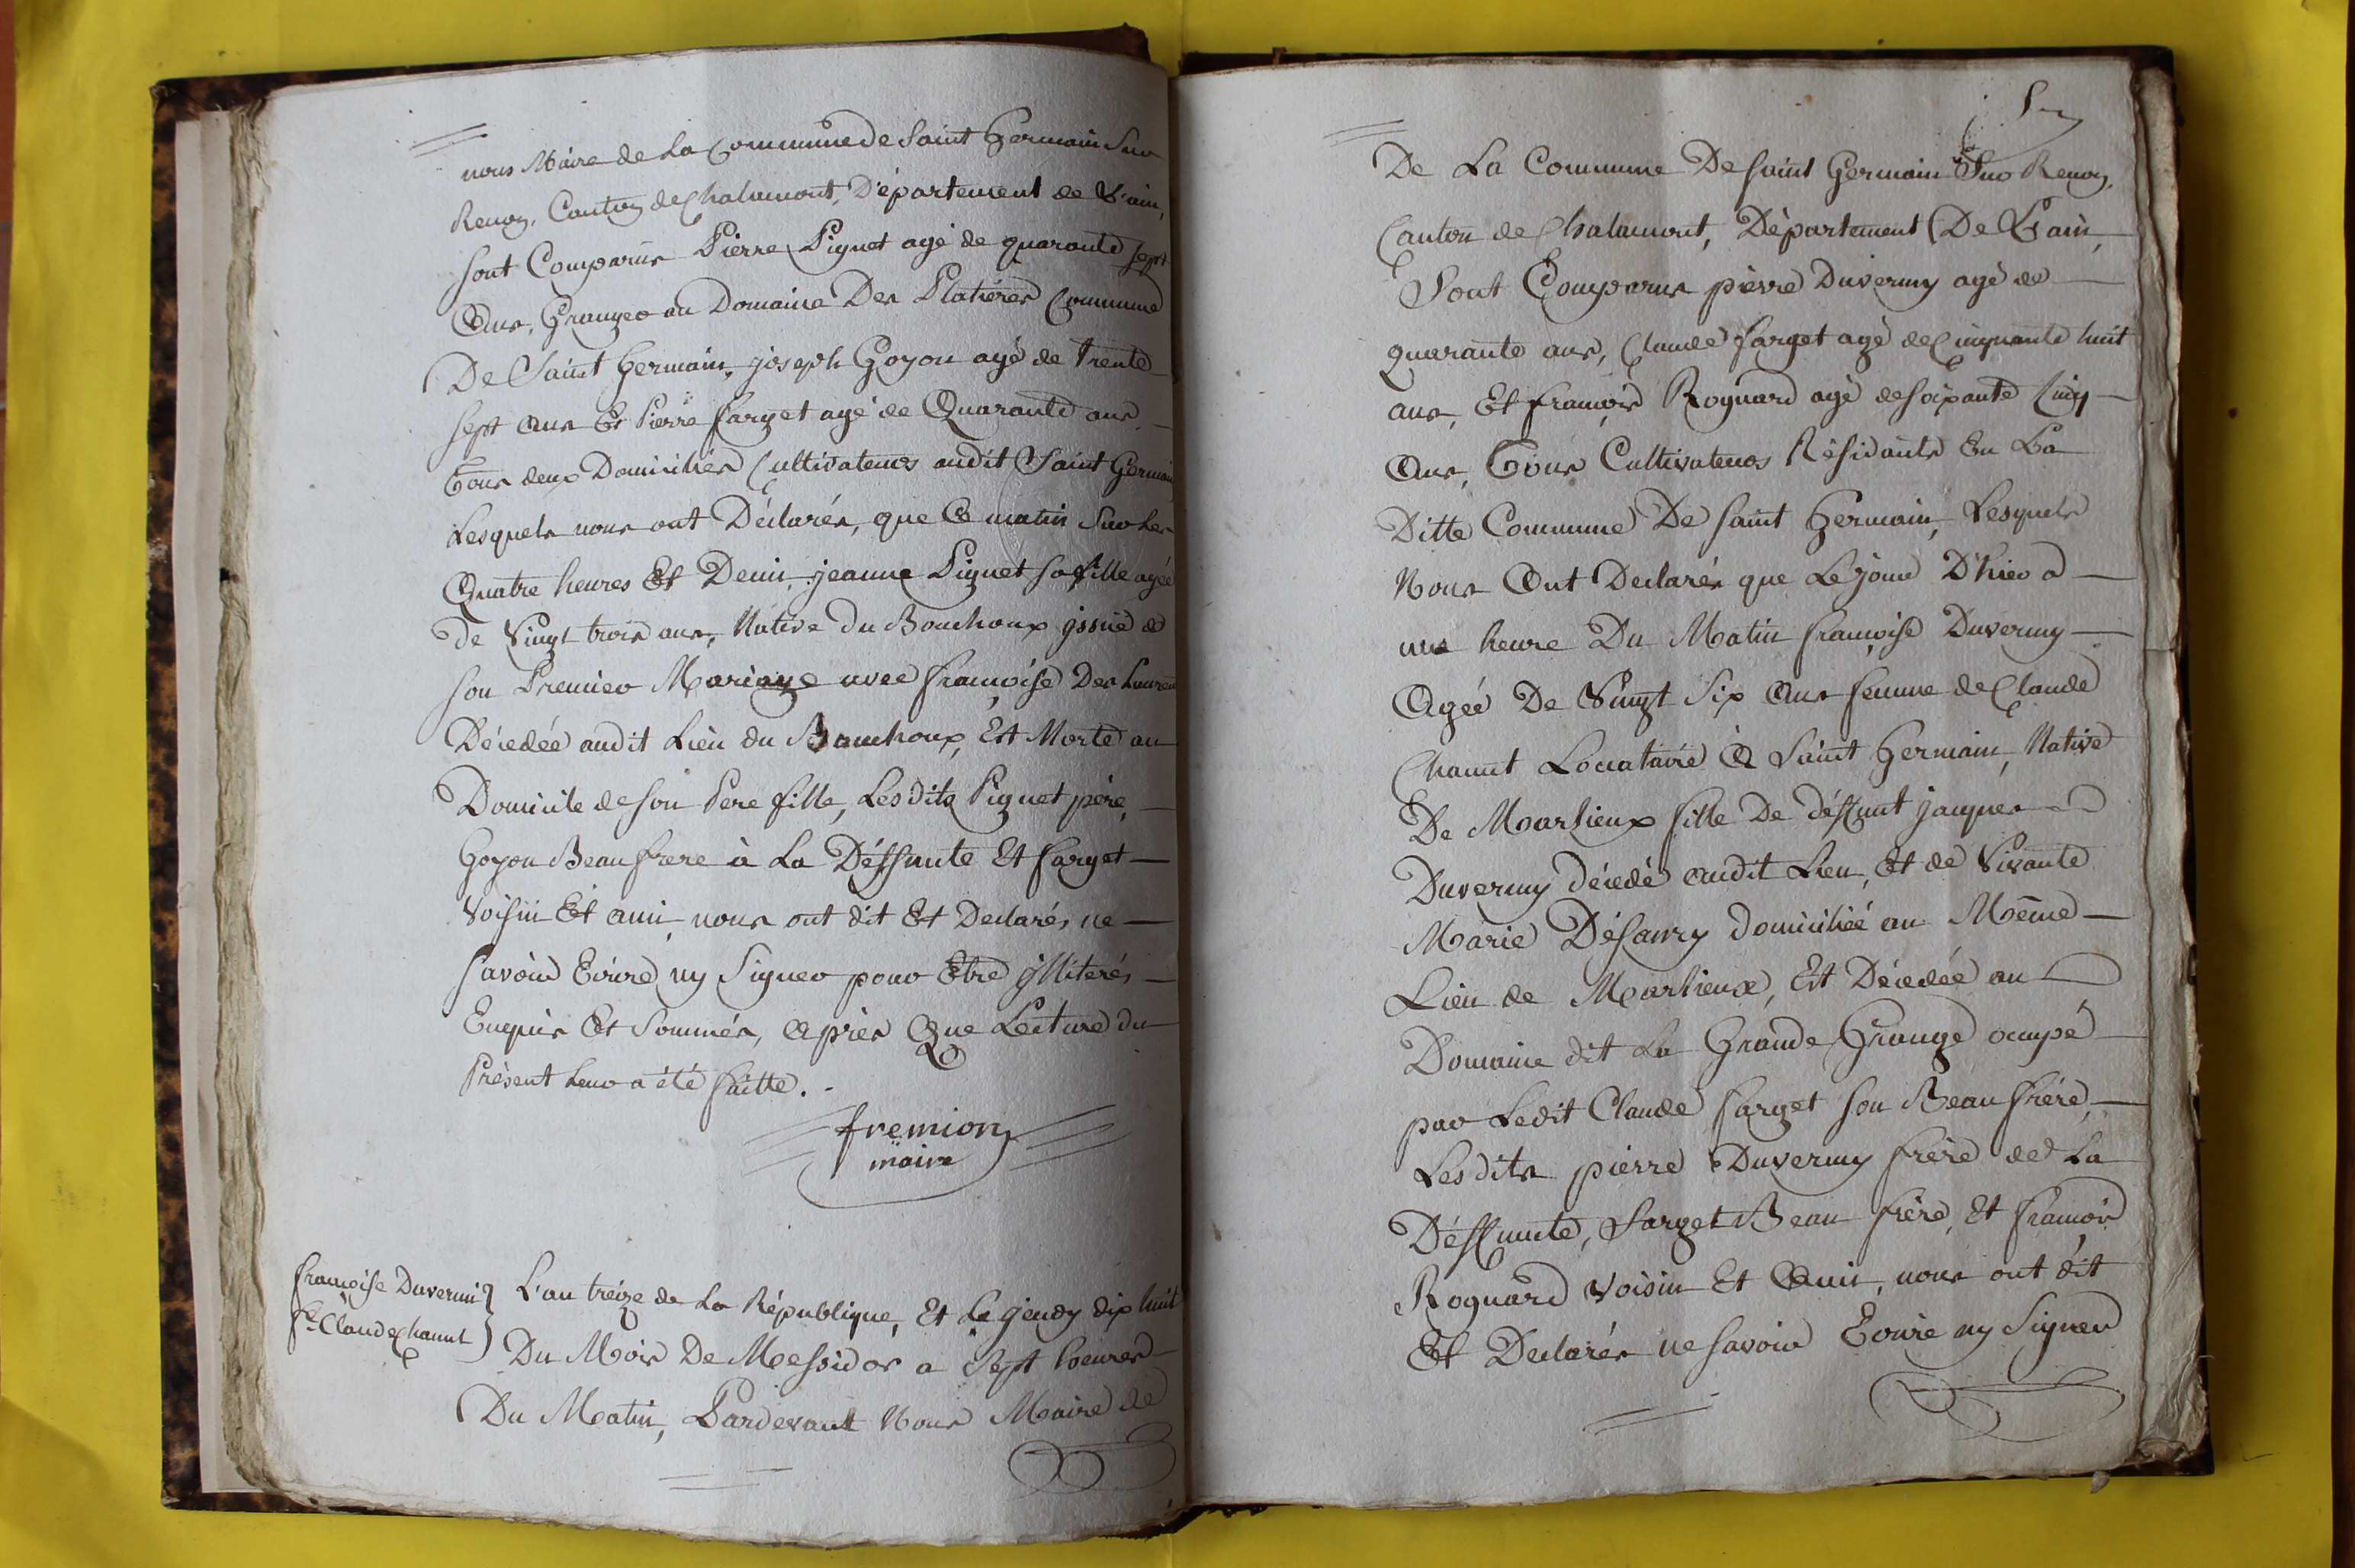 nous Maire de La Commune de Saint Germain Sur
Renon, Canton de Chalamont, Département de L'ain,
sont Comparus Pierre Piguet agé de quarante sept
Ans, Granger au Domaine Des Platières Commune
De Saint Germain, joseph Goyon agé de trente
sept Ans Et Pierre farget agé de Quarante ans,
Tous deux Domiciliés Cultivateurs audit Saint Germain
Lesquels nous ont Déclarés, que Ce matin Sur Les
Quatre heures Et Demi, jeanne Piguet sa fille agée
de Vingt trois ans, Native du Bouchoux issüe de
son Premier Mariage avec françoise Des
Décédée audit Lieu du Bouchoux, Est Morte au
Domicile de son Pere fille, Lesdits Piguet père,
Goyon Beaufrere à La Déffunte Et farget
Voisin Et ami, nous ont dit Et Declarés ne
savoir Ecrire ny Signer pour Etre illiterés
Enquis Et Sommés, Après Que Lecture du
Présent Leur a été faitte.
fremion
maire
françoise Duverni
fe Claude Chanut
L'an treize de La République, Et Le jeudy dix huit
Du Mois De Messidor a Sept heures
Du Matin, Pardevant Nous Maire de
De La Commune De saint Germain Sur Renon,
Canton de Chalamont, Département De L'ain,
Sont Comparus pierre Duverny agé de
quarante ans, Claude farget agé de Cinquante huit
ans, Et françois Roguard agé de soixante Cinq
Ans, Tous Cultivateurs Résidants En La
Ditte Commune De saint Germain, Lesquels
Nous Ont Declarés que Le jour D'hier a
une heure Du Matin françoise Duverny
Agée De Vingt Six Ans femme de Claude
Chanut Locataire A Saint Germain, Native
De Marlieux fille De déffunt jacques
Duverny décédé audit Lieu, Et de Vivante
Marie domiciliée au Même
Lieu de Marlieux, Est Décédée au
Domaine dit La Grande Grange ocupé
par Ledit Claude farget son Beaufrére,
Lesdits pierre Duverny frère de La
Déffunte, farget Beau frère, Et françois
Roguard Voisin Et Ami, nous ont dit
Et Declarés ne savoir Ecrire ny Signer